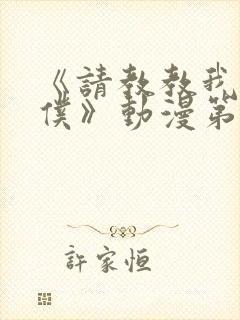 《請教教我
僕》動漫第
許家恒